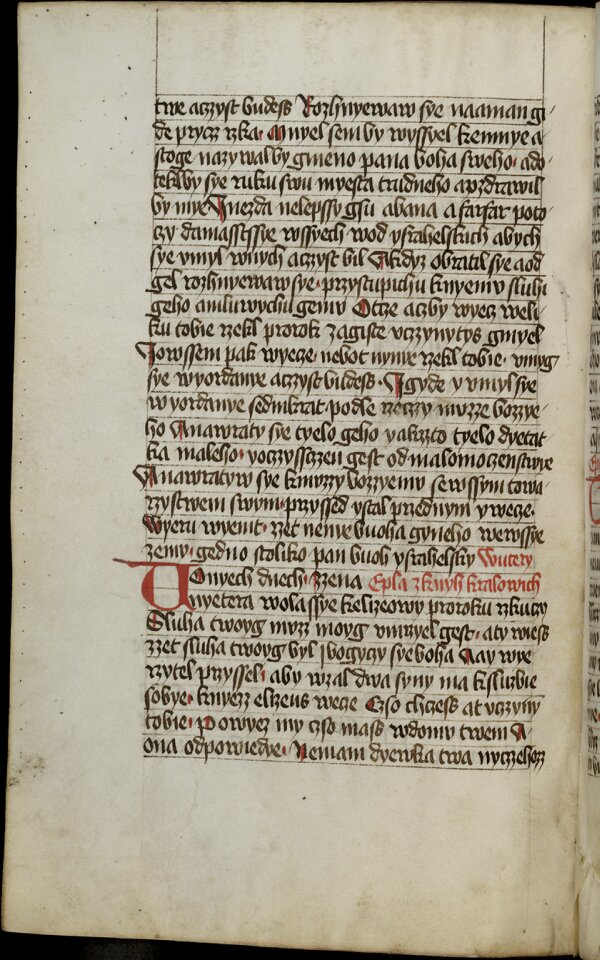 twe aczyst budess Rozhnyewaw sye naaman gi
de prycz rzka· Mnyel sem by wyssyel kemnye a
stoge nazywal by gmeno pana boha sweho· a do
tekl by sye ruku swu myesta trudneho a pzdrawil
by mye Inezda nelepssy gsu abana a farfar poto
czy damasstssye wssyech wod ysrahelskich abych
sye vmyl wnych aczyst bil Akdyz obratil sye a od
gel rozhnyewaw sye· przystupichu knyemu sluhi
geho amluwychu gemu Otcze aczby wyecz weli
ku tobie rzekl prorok zagiste vczynytys gmyel
Iowssem pak wyecze· nebot nynye rzekl tobie· vmyg
sye wyordanye aczyst budess· Igyde y vmyl sye
w yordanye sedmkrat· podle rzeczy muzze bozzye
ho Anawraty sye tyelo geho yakzto tyelo dyetat
ka maleho· yoczysszzen gest od malomoczenstwye
Anawratyw sye kmuzzy bozzyemu sewssym towa
rzystwem swym· przyssed ystal przednym y wecze·
Wyeru wyemt· zzet nenye buoha gyneho wewssye
zemy· gedno stoliko pan buoh ysrahelsky Wutery
Wonyech dnech· Zzena Epla zknyh kralowich
nyetera wolassye kelizeowy proroku rzkucz
Sluha twoyg muz moyg vmrzyel gest· aty wiess
zzet sluha twoyg byl jbogyczy sye boha Aay wye
rzytel przyssel· aby wzal dwa syny ma ksluzbie
sobye· knyezz elizeus wecze Czso chczess at vczyny
tobie· Powyez my czso mass wdomu twem A
ona odpowiedye· Nemam dyewka twa nyczzehozz